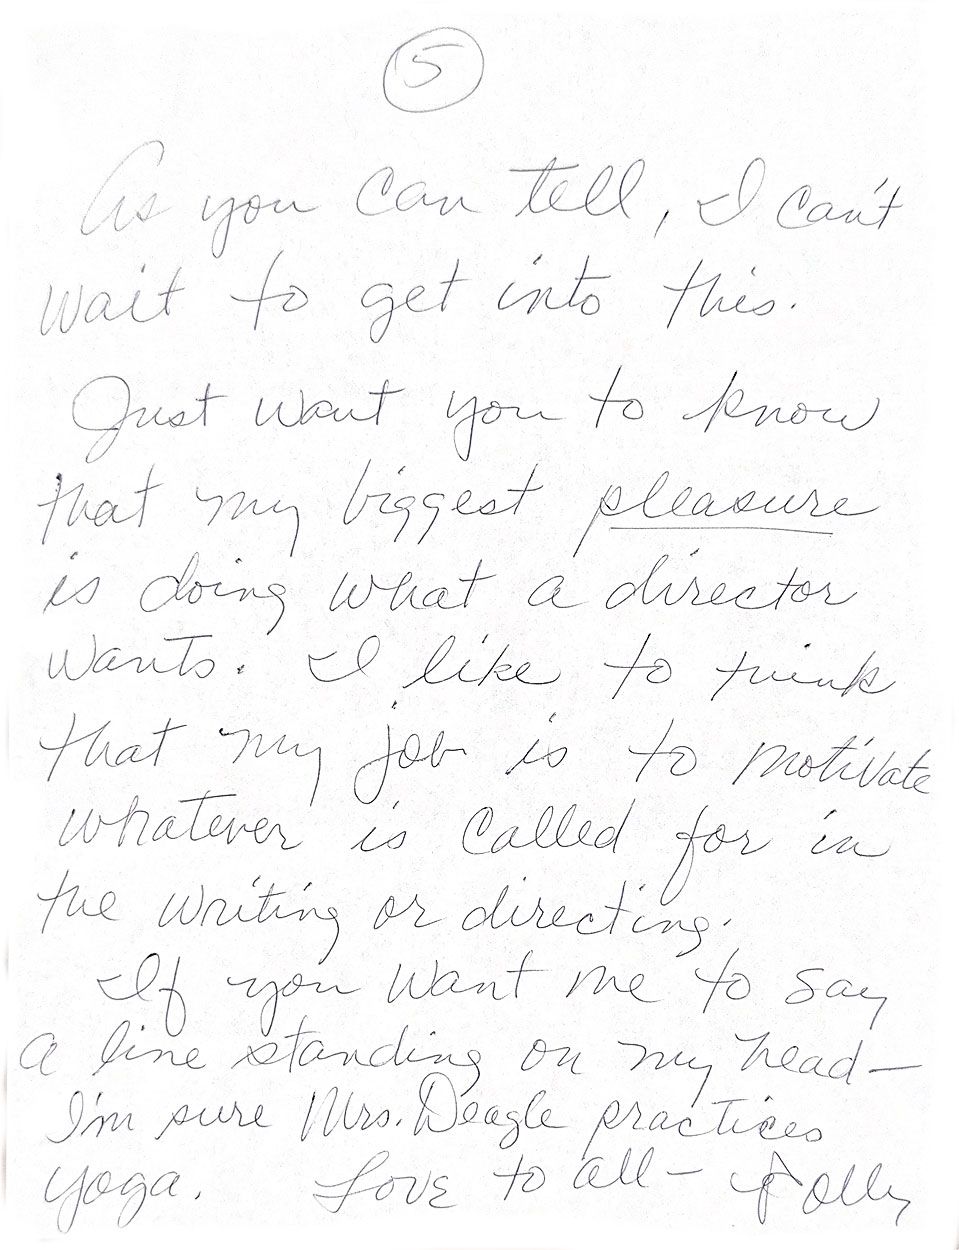 5
As you can tell, I can't
wait to get into this.
Just want you to know
that my biggest pleasure
is doing what a director
wants. I like to think
that my job is to motivate
whatever is called for in
the writing or directing.
If you want me to say
a line standing on my head—
I'm sure Mrs. Deagle practices
yoga. Love to all— Polly